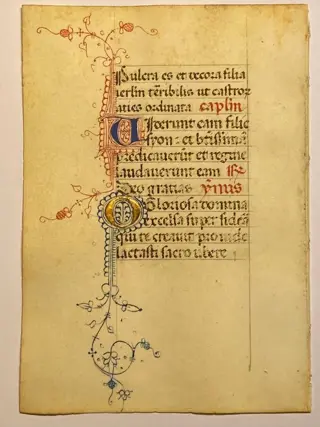 Pulcra es et decora filia
ierlin tēribilis ut castror
aties ordinata capłm
Uiderunt eam filie
syon: et btīssimā
predicaverūt et regine
laudaverunt eam
Deo gratias ymus
O Gloriosa domina
excelsa super sidera
qui te creavit provide
lactasti sacro ubere